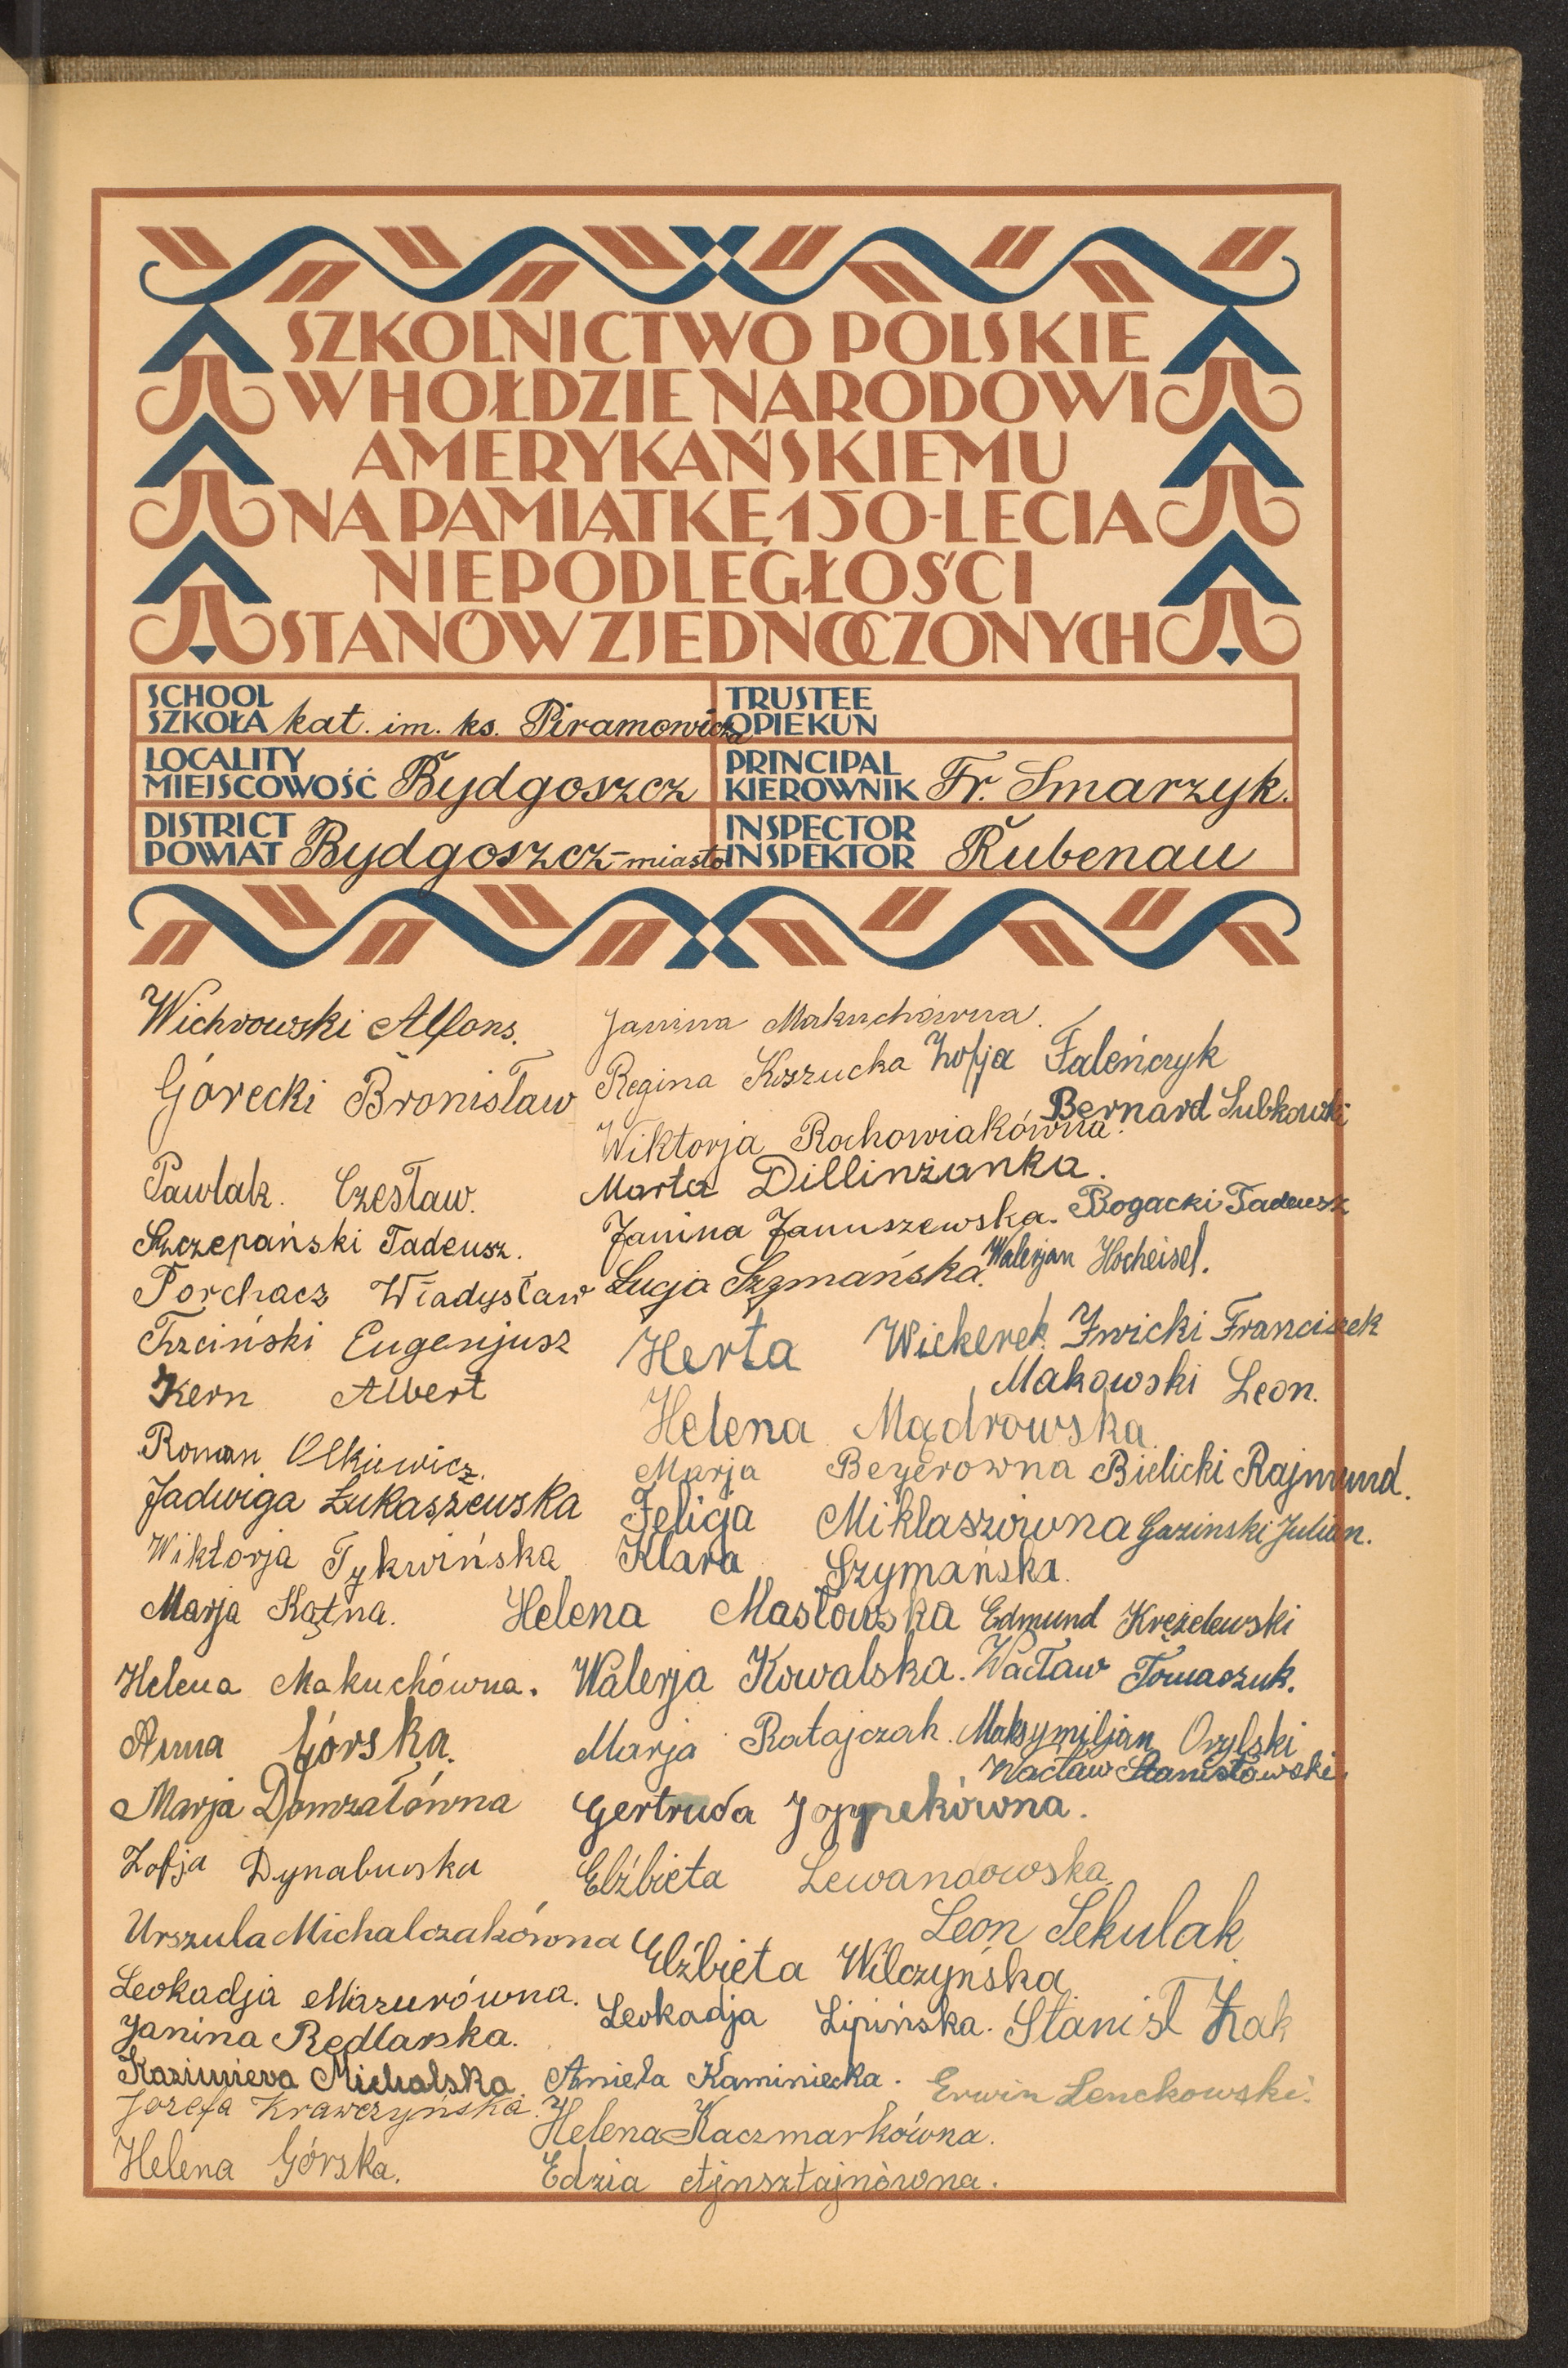 SZKOLNICTWO POLSKIE
W HOŁDZIE NARODOWI
AMERYKAŃSKIEMU
NA PAMIĄTKĘ 150-LECIA
NIEPODLEGŁOŚCI
STANÓW ZJEDNOCZONYCH
SCHOOL
SZKOŁA kat. im. ks. Piramowicza
TRUSTEE
OPIEKUN
LOCALITY
MIEJSCOWOŚĆ Bydgoszcz
PRINCIPAL
KIEROWNIK Fr. Smarzyk.
DISTRICT
POWIAT Bydgoszcz-miasto
INSPECTOR
INSPEKTOR Rubenau
Wichrowski Alfons.
Górecki Bronisław
Pawlak. Czesław.
Szczepański Tadeusz.
Porchacz Władysław
Trzciński Eugenjusz
Kern Albert
Roman Olkiewicz.
Jadwiga Łukaszewska
Wiktorja Tykwińska
Marja Kątna.
Helena Makuchówna.
Anna Górska.
Marja Domzałówna
Zofja Dynabuska
Urszula Michalczakówna
Leokadja Mazurówna.
Janina Redlarska.
Kazimiera Michalska
Józefa Krawczyńska.
Helena Górska.
Janina Makuchówna.
Regina Koszucka
Wiktorja Rochowiakówna.
Marta Dillinżanka.
Janina Januszewska.
Łucja Szymańska.
Herta Wickerek.
Helena Mądrowska
Marja Beyerowna
Felicja Miklaszówna
Klara Szymańska.
Helena Masłowska
Walerja Kowalska.
Marja Ratajczak.
Gertruda Joppekówna.
Elżbieta Lewandowska.
Elżbieta Wilczyńska
Leokadja Lipińska.
Aniela Kaminiecka.
Helena Kaczmarkówna.
Edzia Ajnsztajnówna.
Zofja Faleńczyk
Bernard Lubkowski
Bogacki Tadeusz
Walerjan Hocheisel.
Zwicki Franciszek
Makowski Leon.
Bielicki Rajmund.
Gazinski Julian.
Edmund Krężelewski
Wacław Tomaszuk.
Maksymiljan Orylski
Wacław Stanisławski.
Leon Sekulak
Stanisł Żak
Erwin Lenckowski.